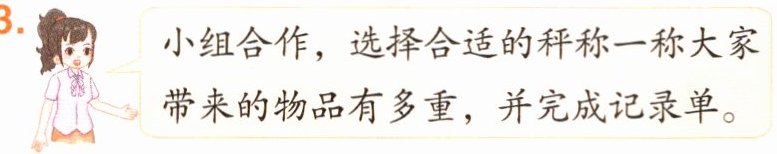 3.
小组合作，选择合适的秤称一称大家
带来的物品有多重，并完成记录单。